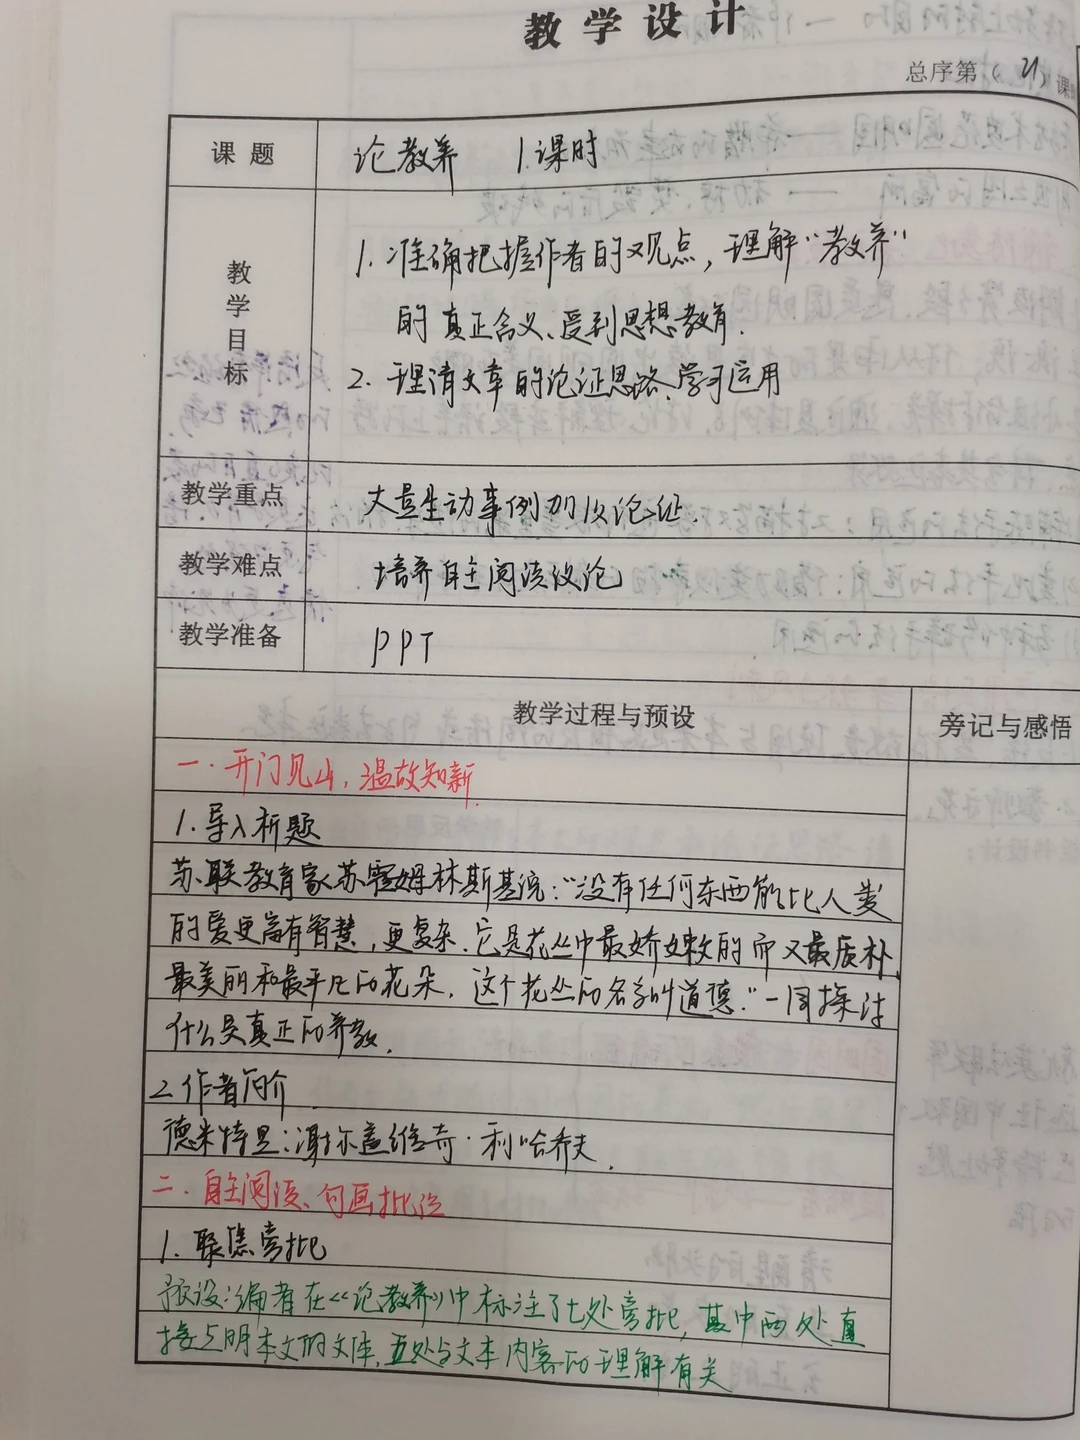 教学设计
总序第（21）课时
课题 论教养 1课时
教学目标
1. 准确把握作者的观点，理解“教养”
的真正含义、受到思想教育.
2. 理清文章的论证思路、学习运用
教学重点 大量生动事例加以论证.
教学难点 培养自主阅读议论
教学准备 PPT
教学过程与预设 旁记与感悟
一. 开门见山, 温故知新.
1. 导入析题
苏联教育家苏霍姆林斯基说：“没有任何东西能比人类
的爱更富有智慧，更复杂. 它是花丛中最娇嫩的而又最质朴,
最美丽和最平凡的花朵，这个花丛的名字叫道德.”一同探讨
什么是真正的养教.
2 作者简介.
德米特里:谢尔盖维奇·利哈乔夫.
二. 自主阅读、勾画批注
1. 聚焦旁批
预设:编者在《论教养》中标注了七处旁批, 其中两处直
接点明本文的文体, 五处与文本内容的理解有关